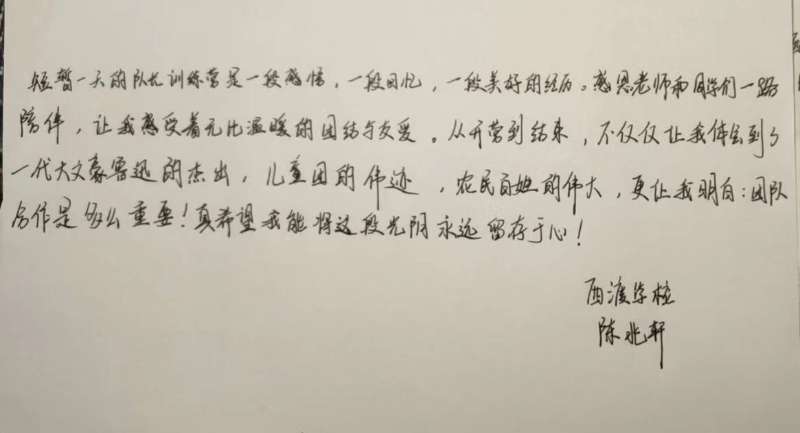 短暂一天的队长训练营是一段感悟，一段回忆，一段美好的经历。感恩老师和同学们一路
陪伴，让我感受着无比温暖的团结与友爱。从开营到结束，不仅仅让我体会到了
一代大文豪鲁迅的杰出，儿童团的伟迹，农民百姓的伟大，更让我明白：团队
合作是多么重要！真希望我能将这段光阴永远留存于心！
西渡学校
陈兆轩